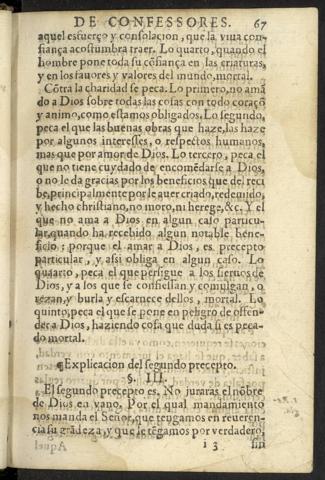 DE CONFESSORES. 67
aquel esfuerço y consolacion, que la viua con-
fiança acostumbra traer. Lo quarto, quando el
hombre pone toda su cõfiança en las criaturas,
y en los fauores y valores del mundo, mortal.
Cõtra la charidad se peca. Lo primero, no amã
do a Dios sobre todas las cosas con todo coraçõ
y animo, como estamos obligados. Lo segundo,
peca el que las buenas obras que haze, las haze
por algunos interesses, o respectos humanos,
mas que por amor de Dios. Lo tercero, peca el
que no tiene cuydado de encomẽdarse a Dios,
o no le da gracias por los beneficios que del reci
be, principalmente por se auer criado, redemido,
y hecho christiano, no moro, ni herege, &c. Y el
que no ama a Dios en algun caso particu-
lar, quando ha recebido algun notable bene-
ficio; porque el amar a Dios, es precepto
particular, y assi obliga en algun caso. Lo
quaarto, peca el que persigue a los sieruos de
Dios, y a los que se confiessan, y comulgan, o
rezan, y burla y escarnece dellos, mortal. Lo
quinto, peca el que se pone en peligro de offen-
der a Dios, haziendo cosa que duda si es peca-
do mortal.
¶Explicacion del segundo precepto.
§. III.
El segundo precepto es. No juraras el nõbre
de Dios en vano. Por el qual mandamiento
nos manda el Señor, que tengamos en reueren-
cia su grãdeza, y que le tẽgamos por verdadero,
i 3 sin